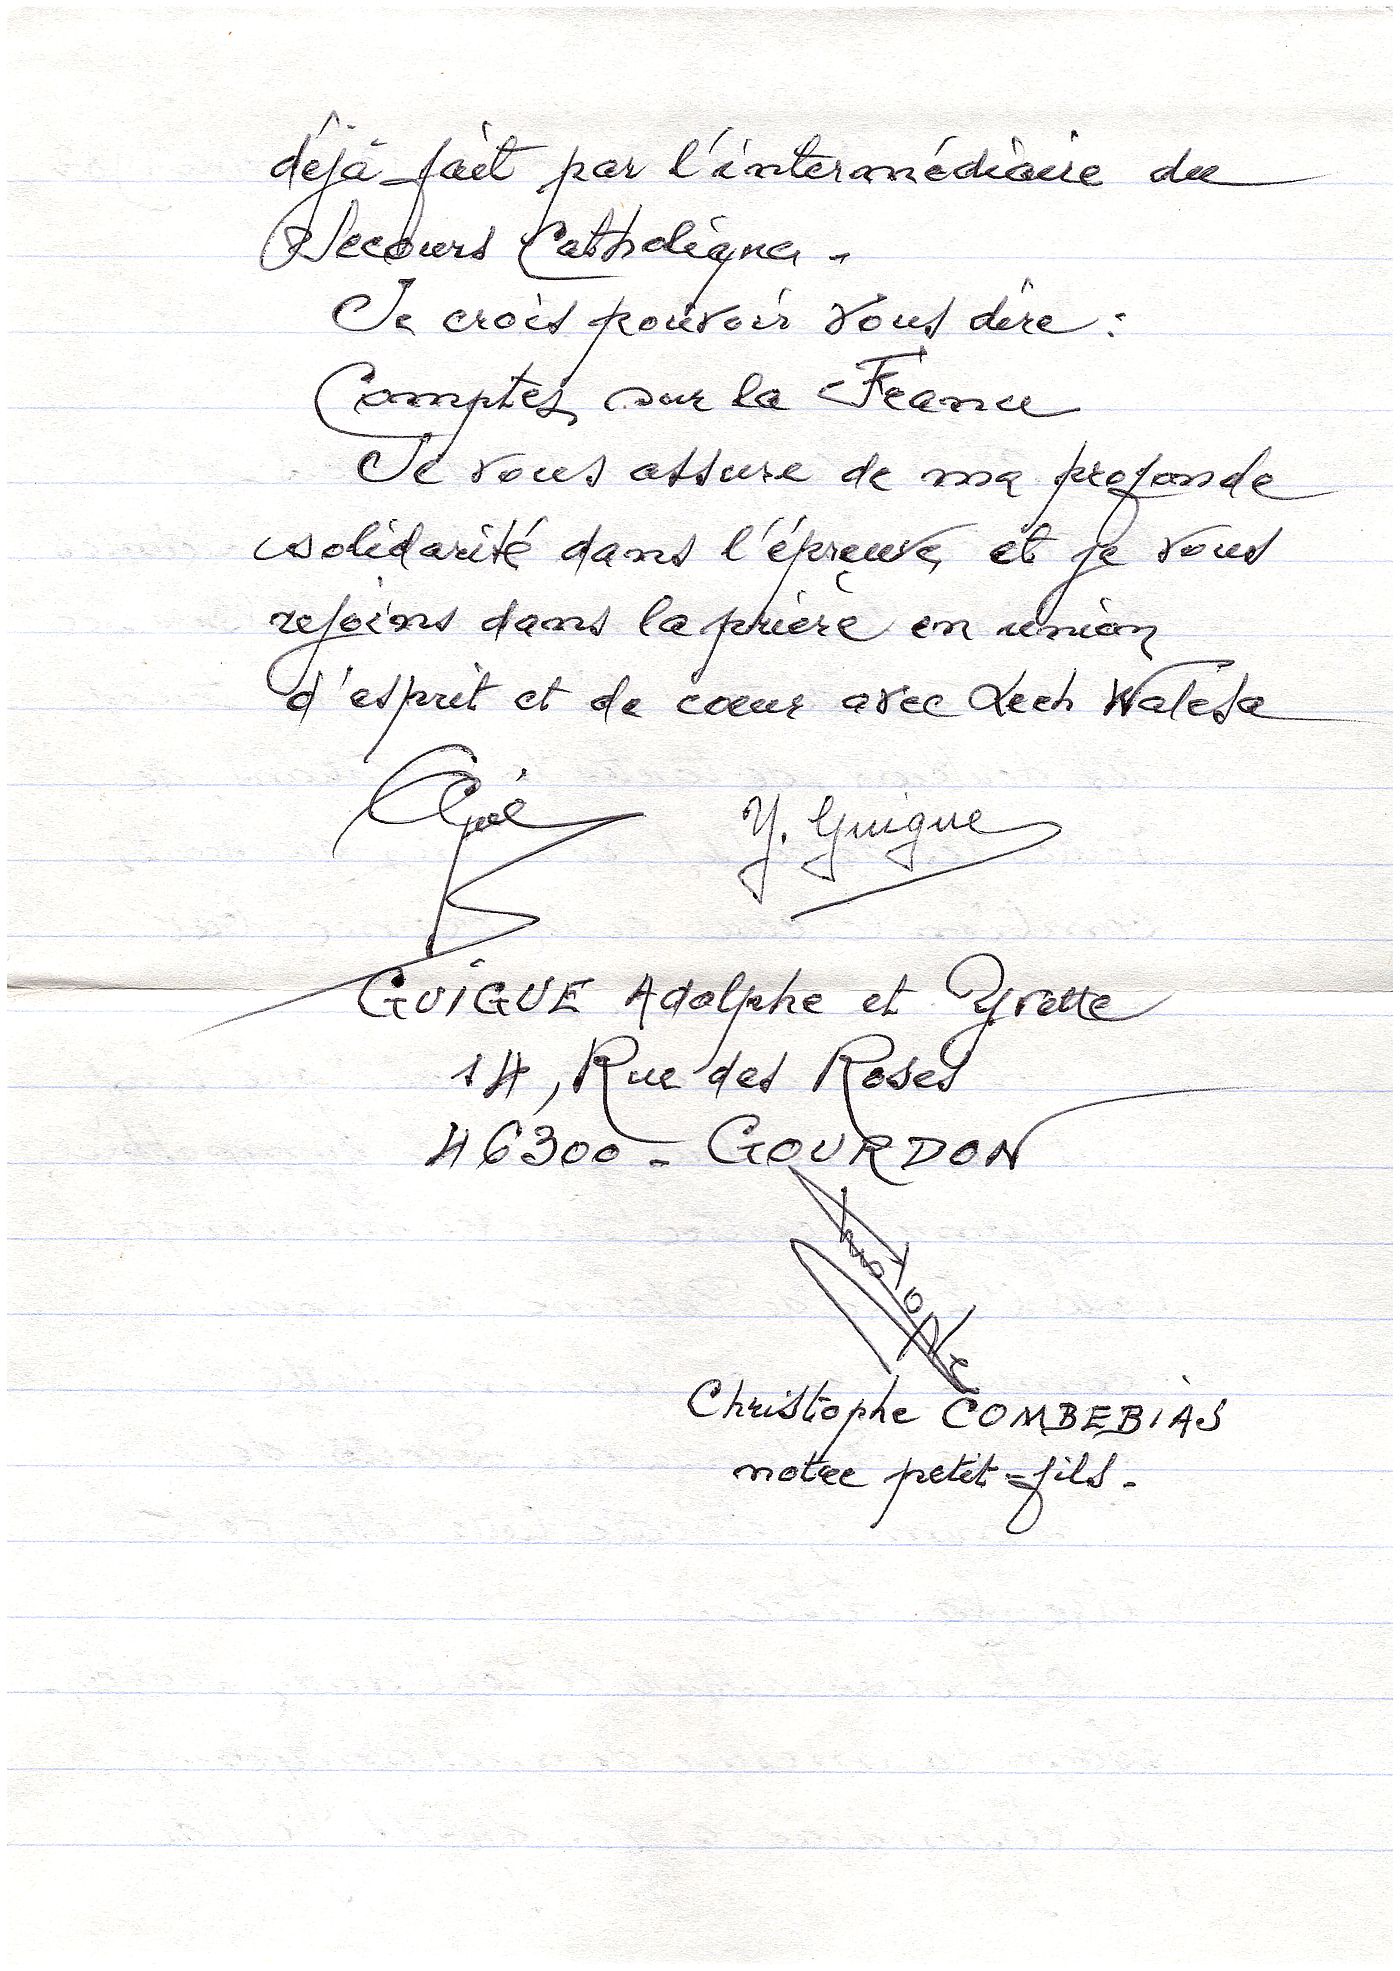 déjà fait par l'intermédiaire du
Secours Catholique.
Je crois pouvoir vous dire :
Comptez sur la France
Je vous assure de ma profonde
solidarité dans l'épreuve et je vous
rejoins dans la prière en union
d'esprit et de cœur avec Lech Walesa
Y. Guigue
GUIGUE Adolphe et Yvette
14, Rue des Roses
46300 - GOURDON
Christophe
Christophe COMBEBIAS
notre petit-fils.